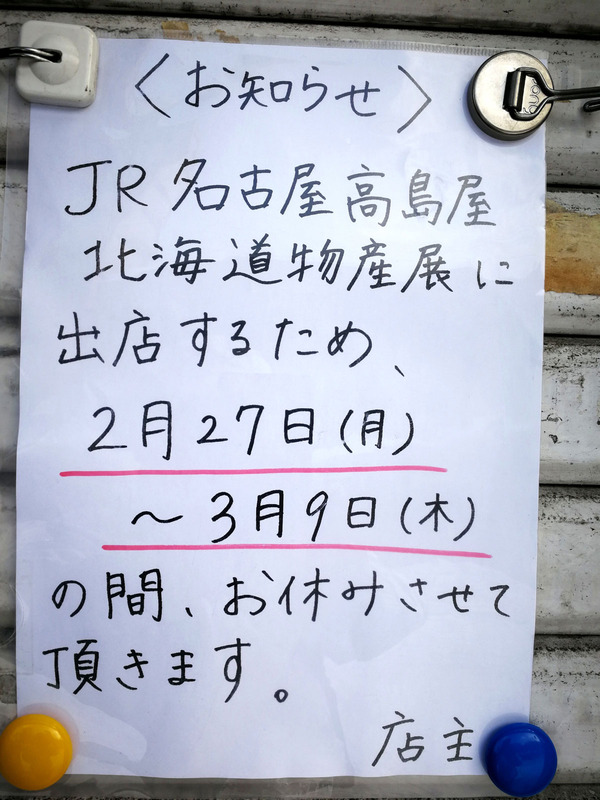 〈お知らせ〉
JR名古屋高島屋
北海道物産展に
出店するため、
2月27日(月)
〜3月9日(木)
の間、お休みさせて
頂きます。
店主